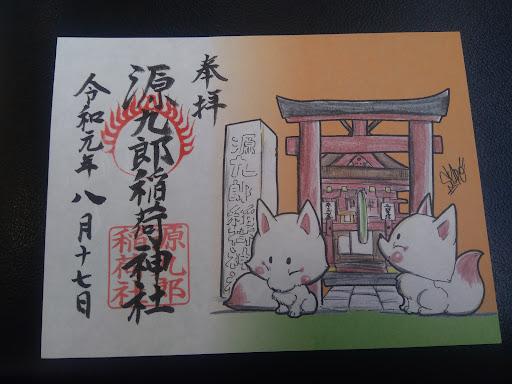 源九郎稲荷
奉拝
源九郎稲荷神社
源九郎
稲荷社
令和元年 八月十七日